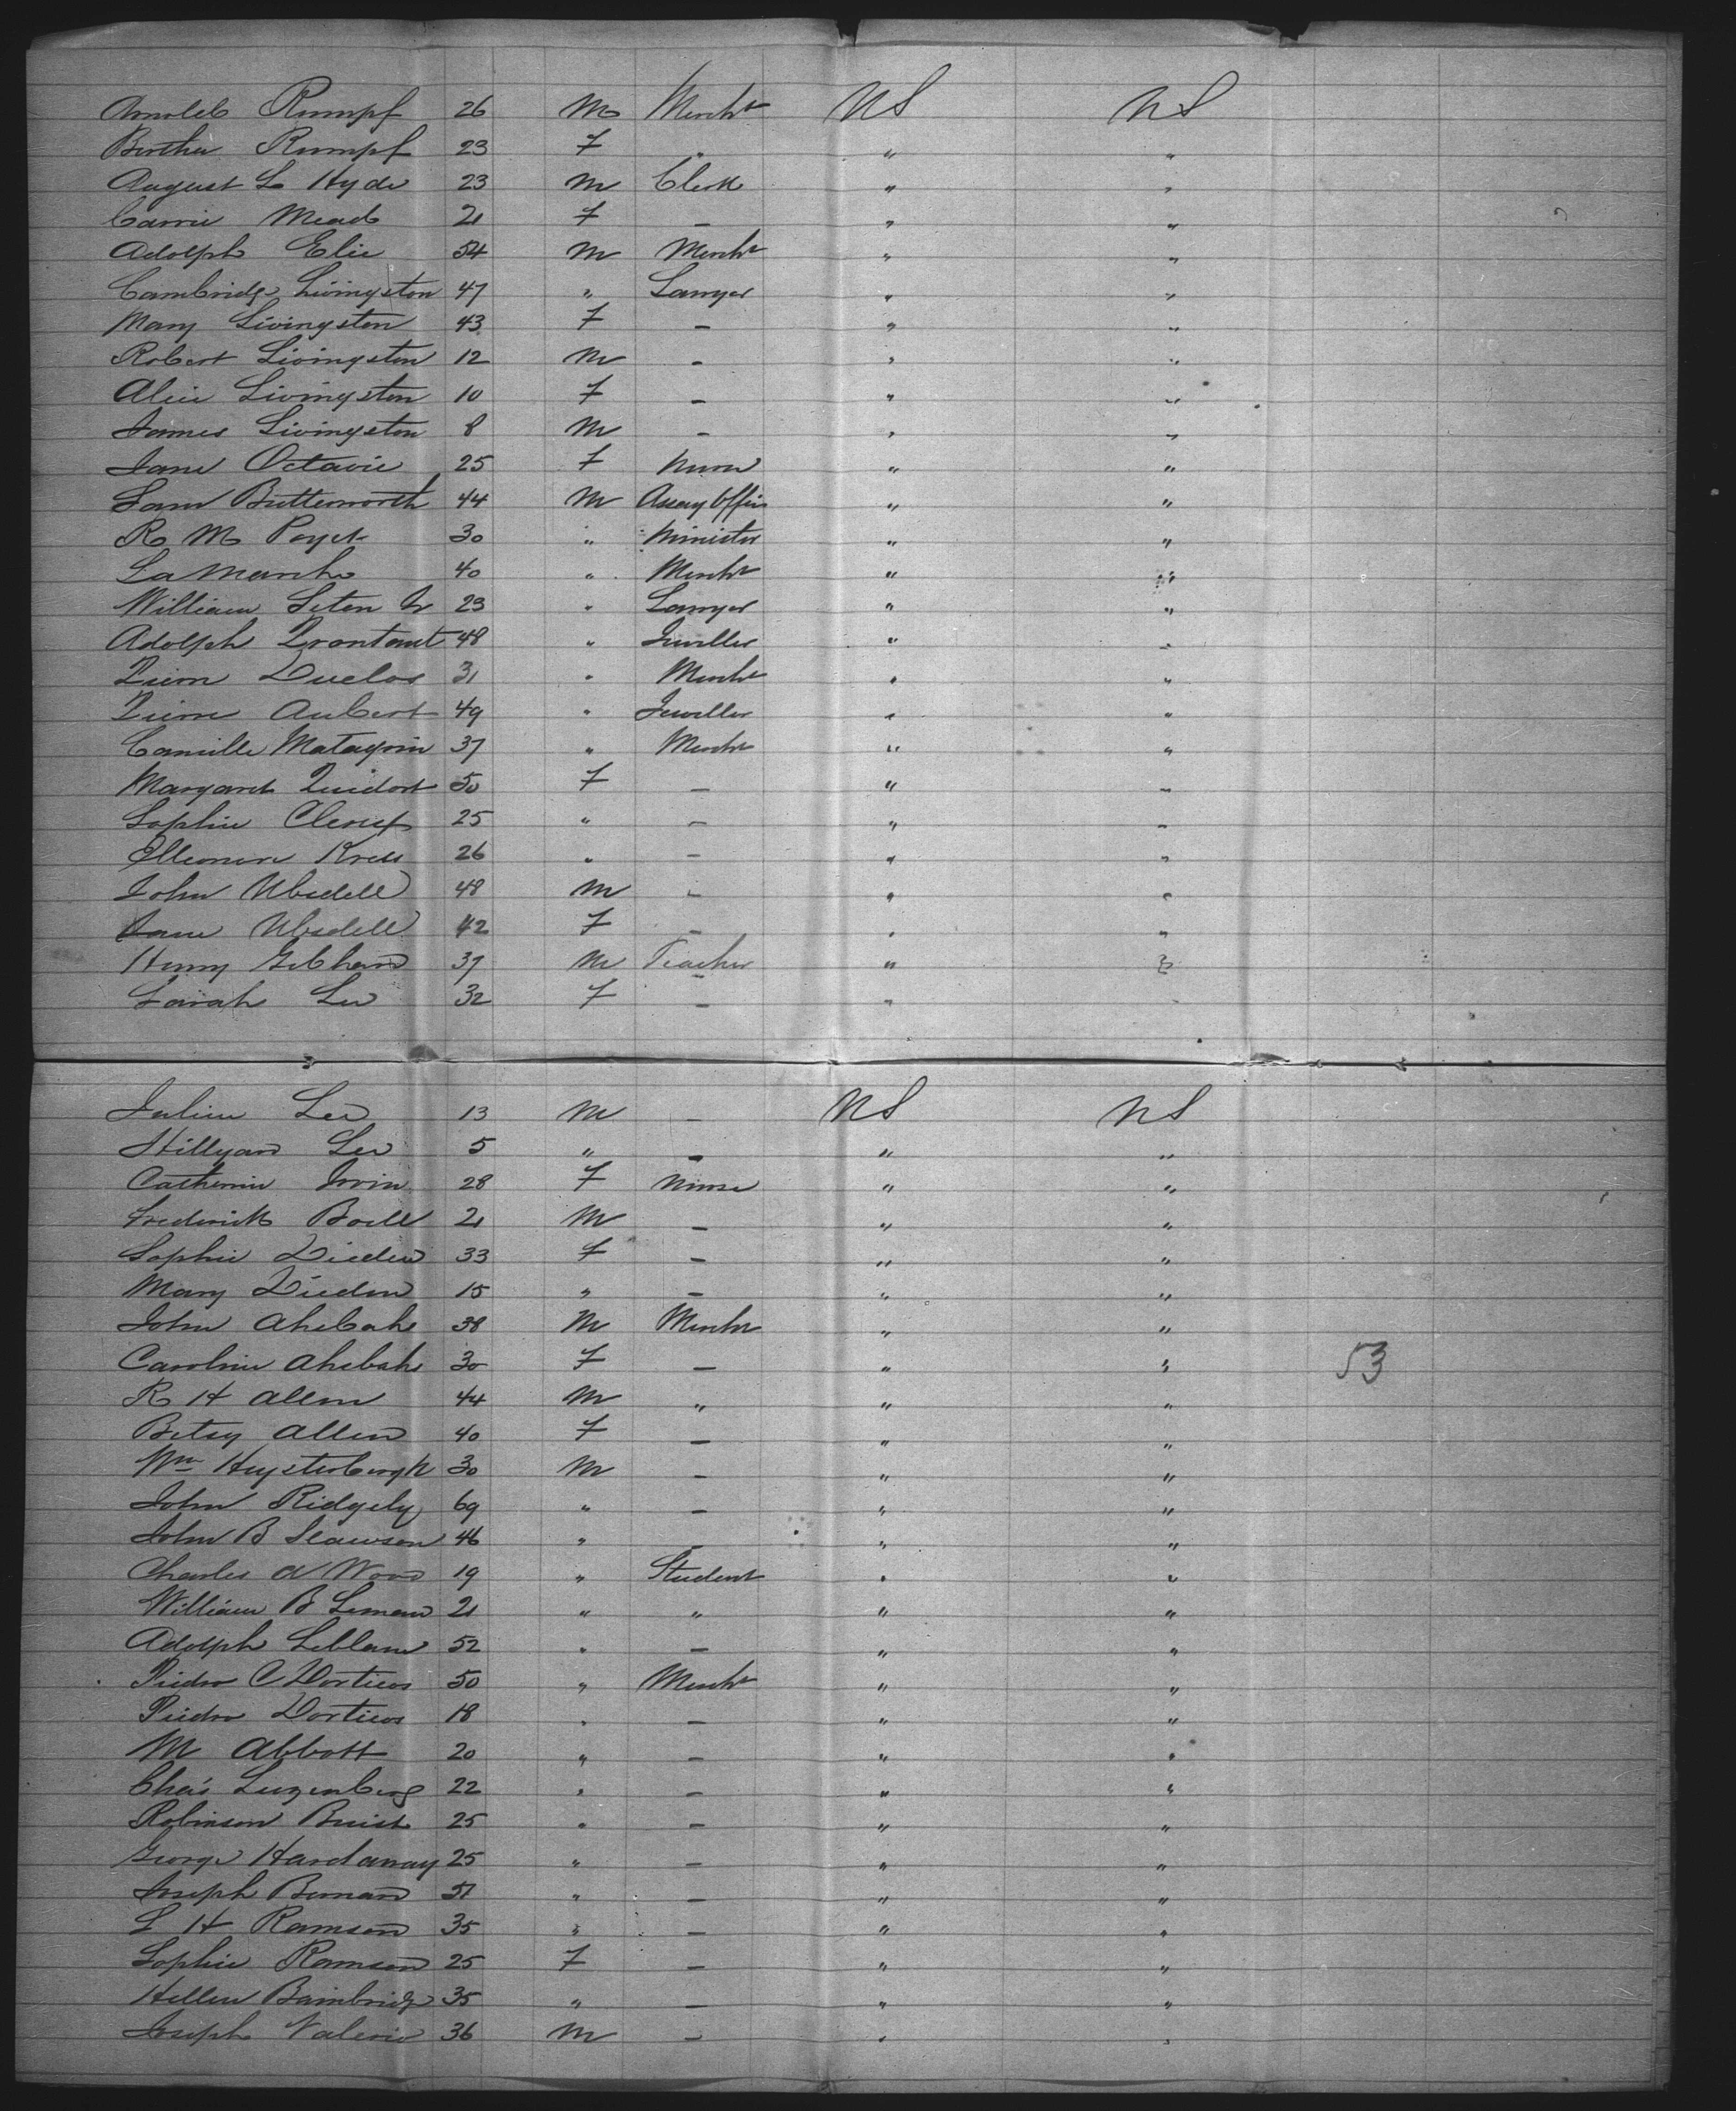 Arnold Rumpf 26 M Mercht US US
Bertha Rumpf 23 F " " "
August L Hyde 23 M Clerk " "
Carrie Mead 21 F - " "
Adolph Elie 54 M Mercht " "
Cambridge Livingston 47 " Lawyer " "
Mary Livingston 43 F - " "
Robert Livingston 12 M - " "
Alice Livingston 10 F - " "
James Livingston 8 M - " "
Jane Octavie 25 F Nurse " "
Saml Butterworth 44 M Assay Office " "
R M 30 " Minister " "
40 " Mercht " "
William Seton Jr 23 " Lawyer " "
Adolph 48 " Jeweller " "
Duclos 31 " Mercht " "
Aubert 49 " Jeweller " "
Camille 37 " Mercht " "
Margaret 50 F - " "
Sophie 25 " - " "
26 " - " "
John Ubsdell 48 M - " "
Jane Ubsdell 42 F - " "
Henry Gebhard 37 M Teacher " "
Sarah Lee 32 F - " "
Julien Lee 13 M - US US
Hillyard Lee 5 " - " "
Catherine Irvin 28 F Nurse " "
Frederick 21 M - " "
Sophie 33 F - " "
Mary 15 " - " "
John 38 M Mercht " "
Caroline 30 F - " " 53
R H Allen 44 M " " "
Betsy Allen 40 F - " "
Wm 30 M - " "
John Ridgely 69 " - " "
John B Slawson 46 " - " "
Charles A Wood 19 " Student " "
William B Leman 21 " " " "
Adolph Leblanc 52 " - " "
Piedro C Dorticos 50 " Mercht " "
Piedro Dorticos 18 " - " "
M Abbott 20 " - " "
Chas Luzenberg 22 " - " "
Robinson Buist 25 " - " "
George Hardaway 25 " - " "
Joseph 51 " - " "
L H Ramson 35 " - " "
Sophie Ramson 25 F - " "
Hellen Bambridge 35 " - " "
Joseph Valerio 36 M - " "